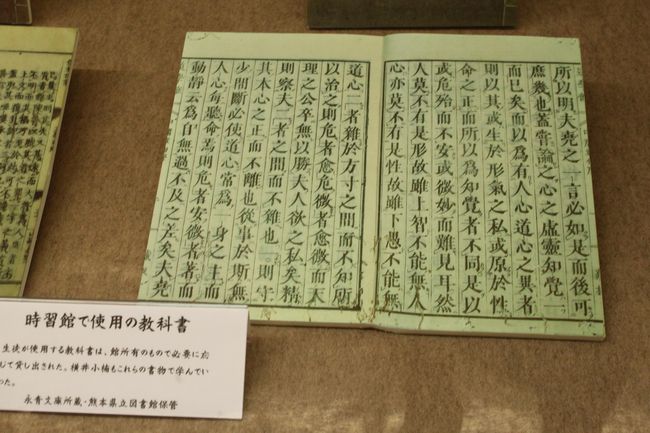 所以明夫堯之一言必如是而後可
庶幾也蓋嘗論之心之虛靈知覺一
而已矣而以為有人心道心之異者
則以其或生於形氣之私或原於性
命之正而所以為知覺者不同是以
或危殆而不安或微妙而難見耳然
人莫不有是形故雖上智不能無人
心亦莫不有是性故雖下愚不能無
道心二者雜於方寸之間而不知所
以治之則危者愈危微者愈微而天
理之公卒無以勝夫人欲之私矣精
則察夫二者之間而不雜也一則守
其本心之正而不離也從事於斯無
少間斷必使道心常為一身之主而
人心每聽命焉則危者安微者著而
動靜云為自無過不及之差矣夫堯
時習館で使用の教科書
生徒が使用する教科書は、館所有のもので必要に応
じて貸し出された。横井小楠もこれらの書物で学んでい
った。
永青文庫所蔵・熊本県立図書館保管